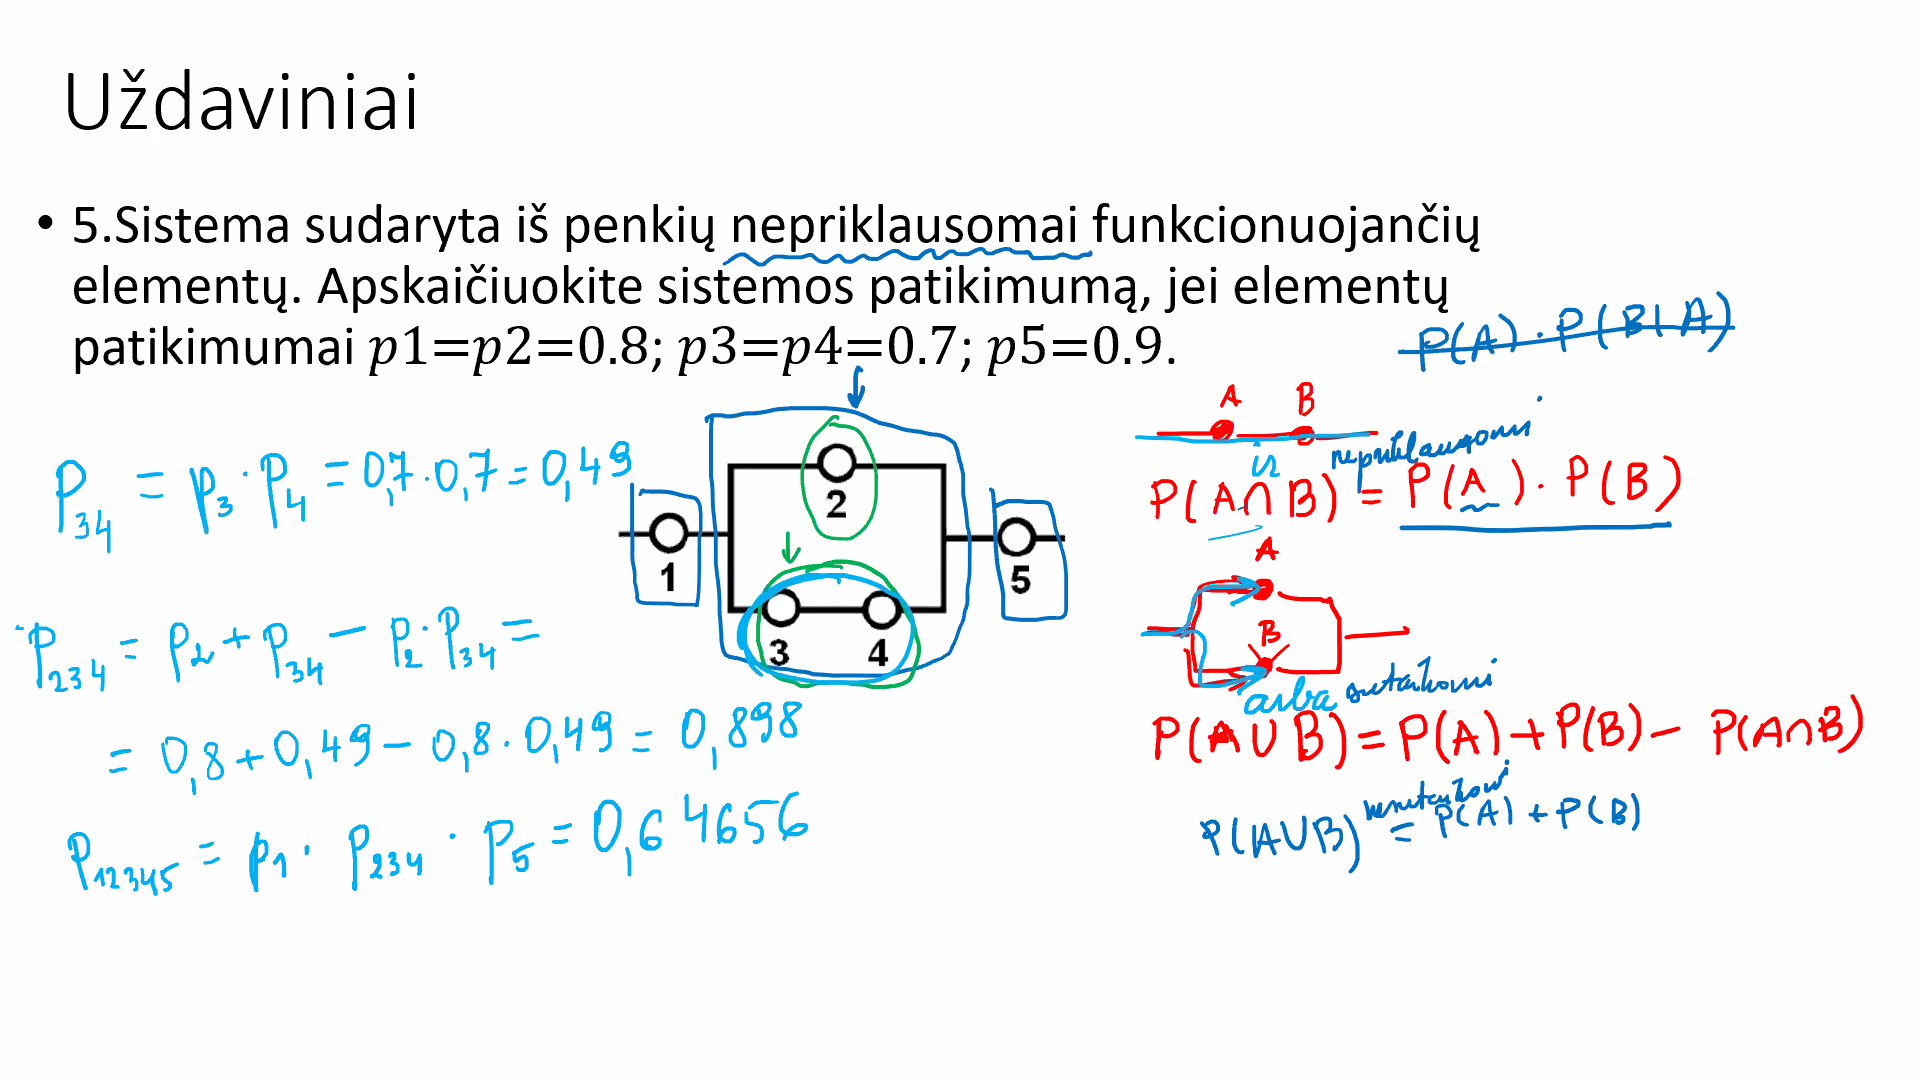 Uždaviniai
• 5.Sistema sudaryta iš penkių nepriklausomai funkcionuojančių
elementų. Apskaičiuokite sistemos patikimumą, jei elementų
patikimumai p1=p2=0.8; p3=p4=0.7; p5=0.9.
P(A) · P(B|A)
P₃₄ = p₃ · p₄ = 0,7 · 0,7 = 0,49
P₂₃₄ = p₂ + p₃₄ − p₂ · p₃₄ =
= 0,8 + 0,49 − 0,8 · 0,49 = 0,898
P₁₂₃₄₅ = p₁ · p₂₃₄ · p₅ = 0,64656
1
2
3
4
5
A B
ir nepriklausomi
P(A∩B) = P(A) · P(B)
A
B
arba sutaikomi
P(A∪B) = P(A) + P(B) − P(A∩B)
nesutaikomi
P(A∪B) = P(A) + P(B)